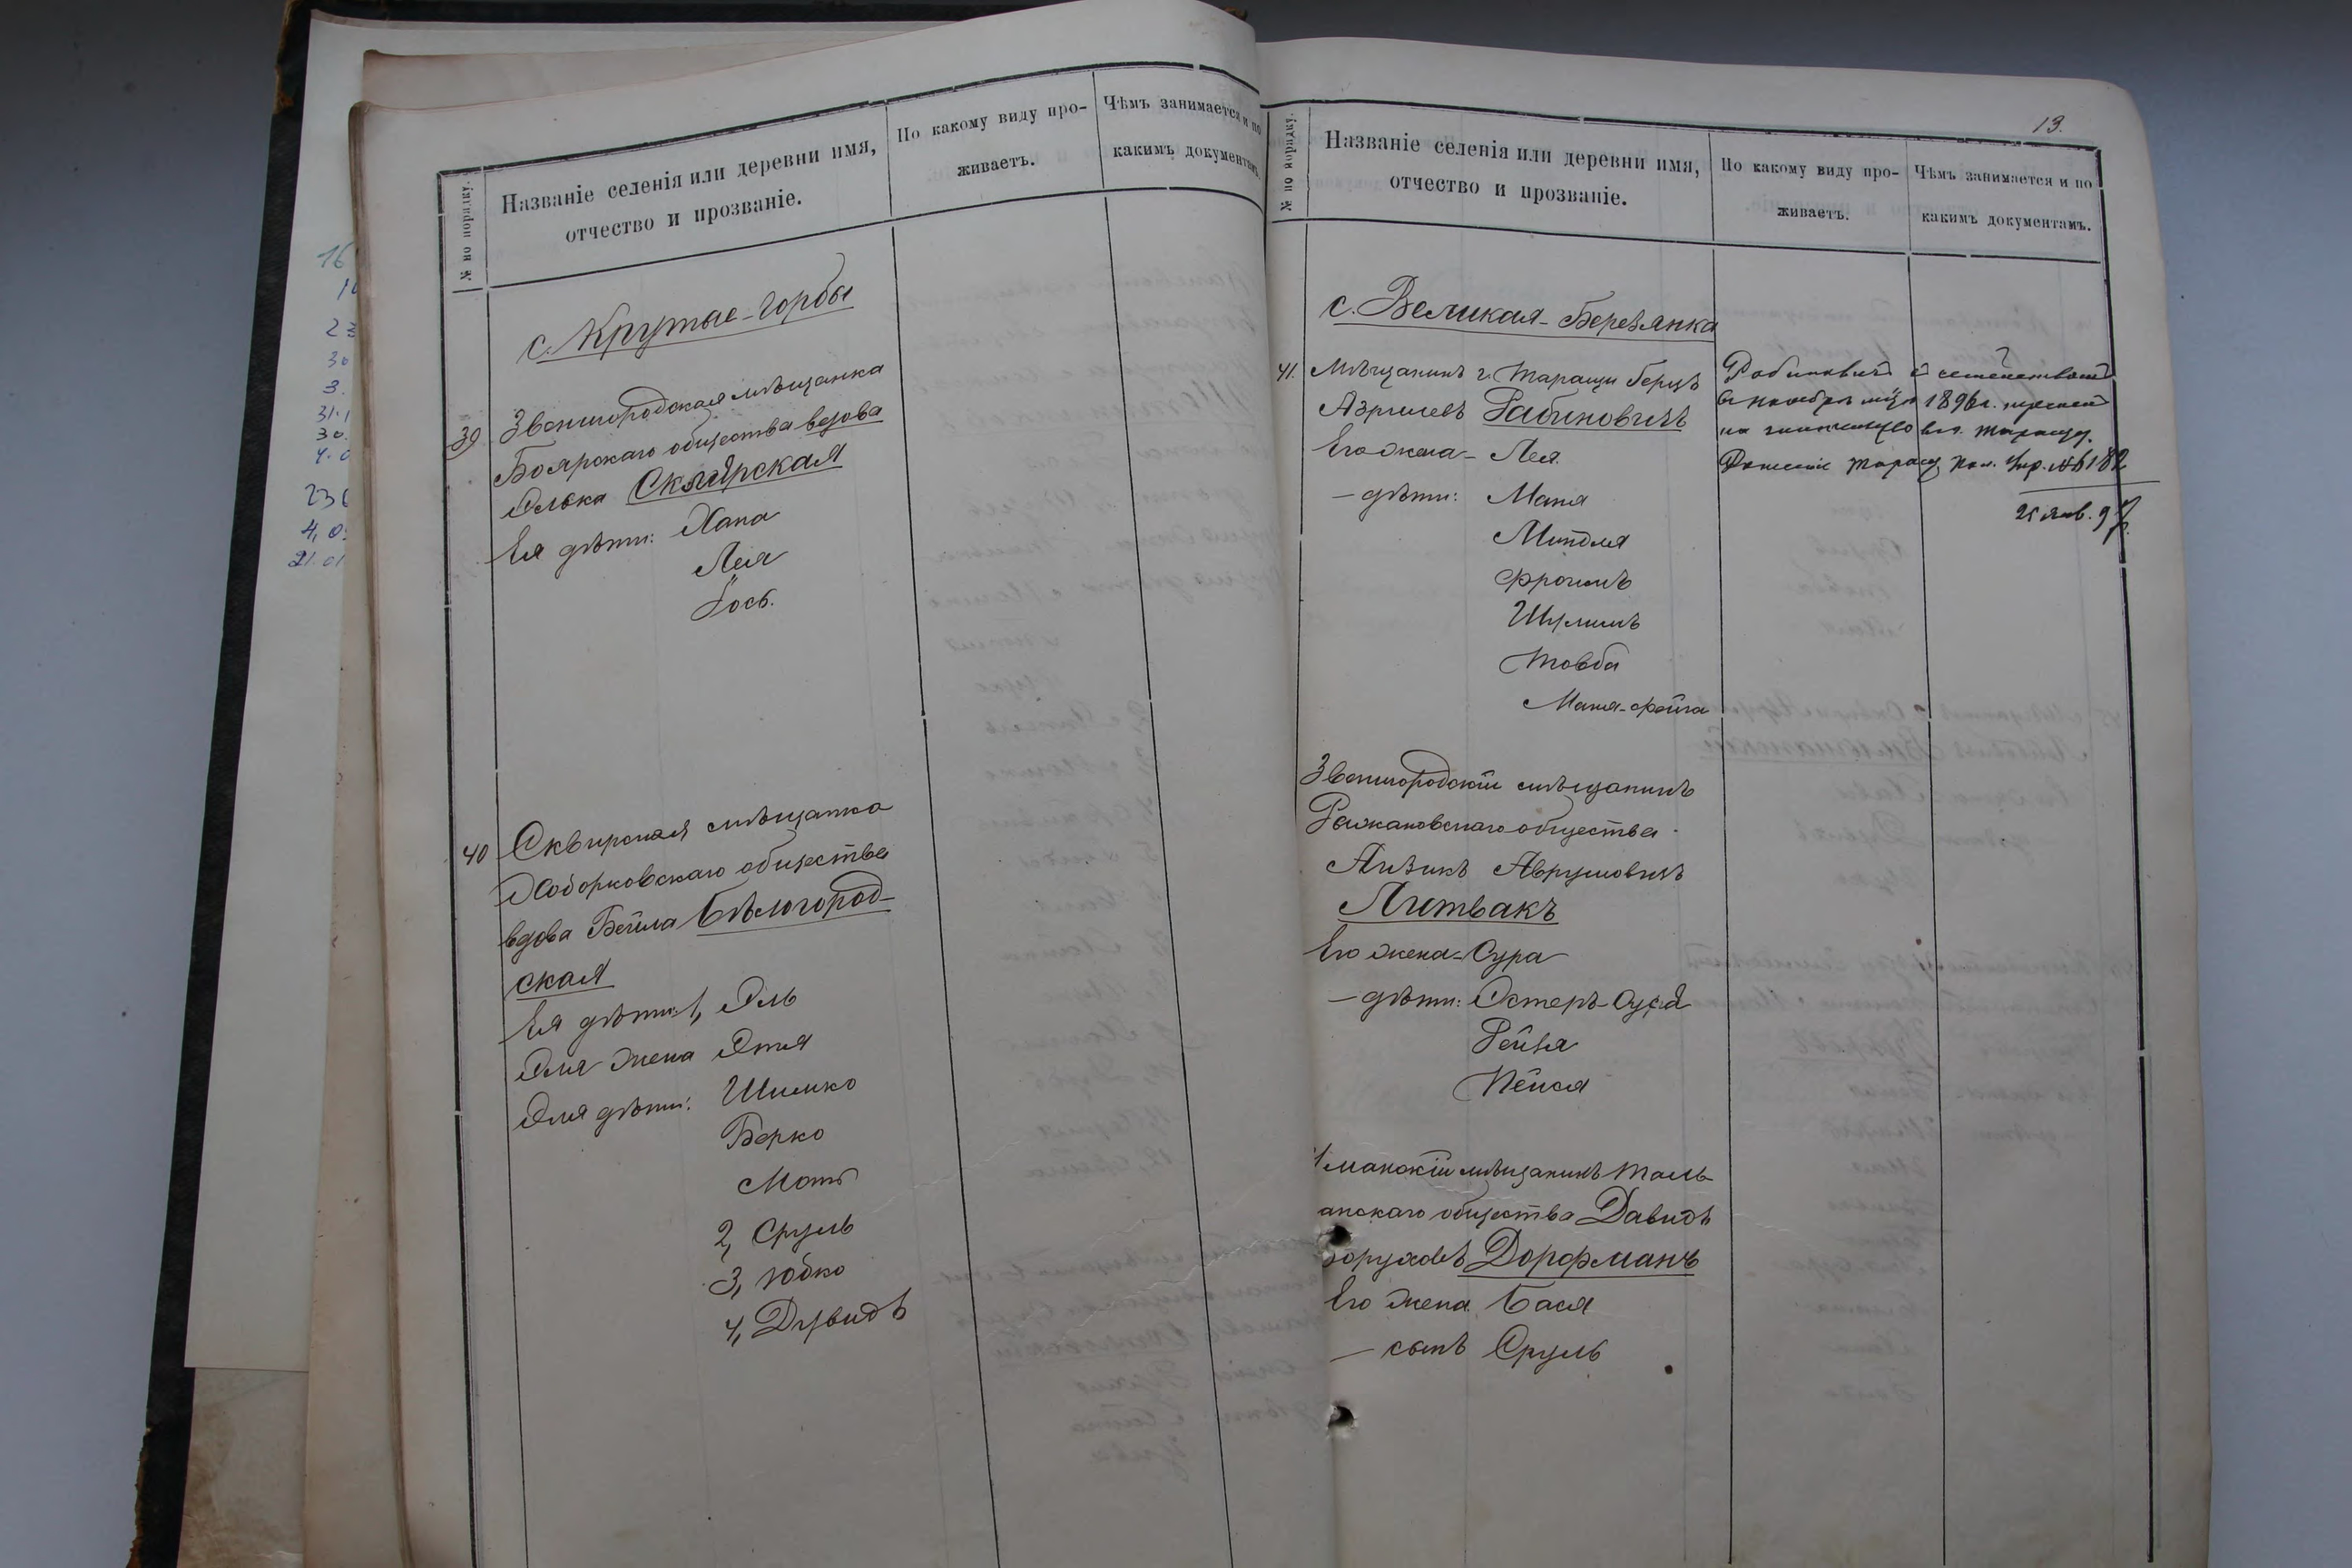 16
23
30
3.
31.1
30.
4.0
236
4,0
21.01
№ по порядку.
Названіе селенія или деревни имя,
отчество и прозваніе.
По какому виду про-
живаетъ.
Чѣмъ занимается и по
какимъ документамъ.
с. Крутые-Горбы
39 Звенигородская мѣщанка
Боярскаго общества вдова
Элька Склярская
Ея дѣти: Хана
Лея
Іось.
40 Сквирская мѣщанка
Ходорковскаго общества
вдова Бейла Бѣлогород-
ская
Ея дѣти: 1, Эль
Эля жена Этя
Эля дѣти: Шимко
Берко
Мотъ
2, Сруль
3, Юдко
4, Дувидъ
13.
№ по порядку.
Названіе селенія или деревни имя,
отчество и прозваніе.
По какому виду про-
живаетъ.
Чѣмъ занимается и по
какимъ документамъ.
с. Великая-Березянка
41. Мѣщанинъ г. Таращи Берцъ
Азрилевъ Рабиновичъ
Его жена - Лея
— дѣти: Маня
Миндля
Фроимъ
Шулимъ
Товба
Маня-Фейга
Рабиновичъ с семействомъ
въ ноябрѣ 1896 г.
на жительство в г. Таращу.
Тараща Пол. Упр. № 182
25 янв. 97 г.
Звенигородскій мѣщанинъ
Рыжановскаго общества
Айзикъ Аврумовичъ
Литвакъ
Его жена - Сура
— дѣти: Эстеръ-Суря
Рейзя
Пейся
манскій мѣщанинъ Таль-
анскаго общества Давидъ
Боруховъ Дорфманъ
Его жена Бася
— сынъ Сруль